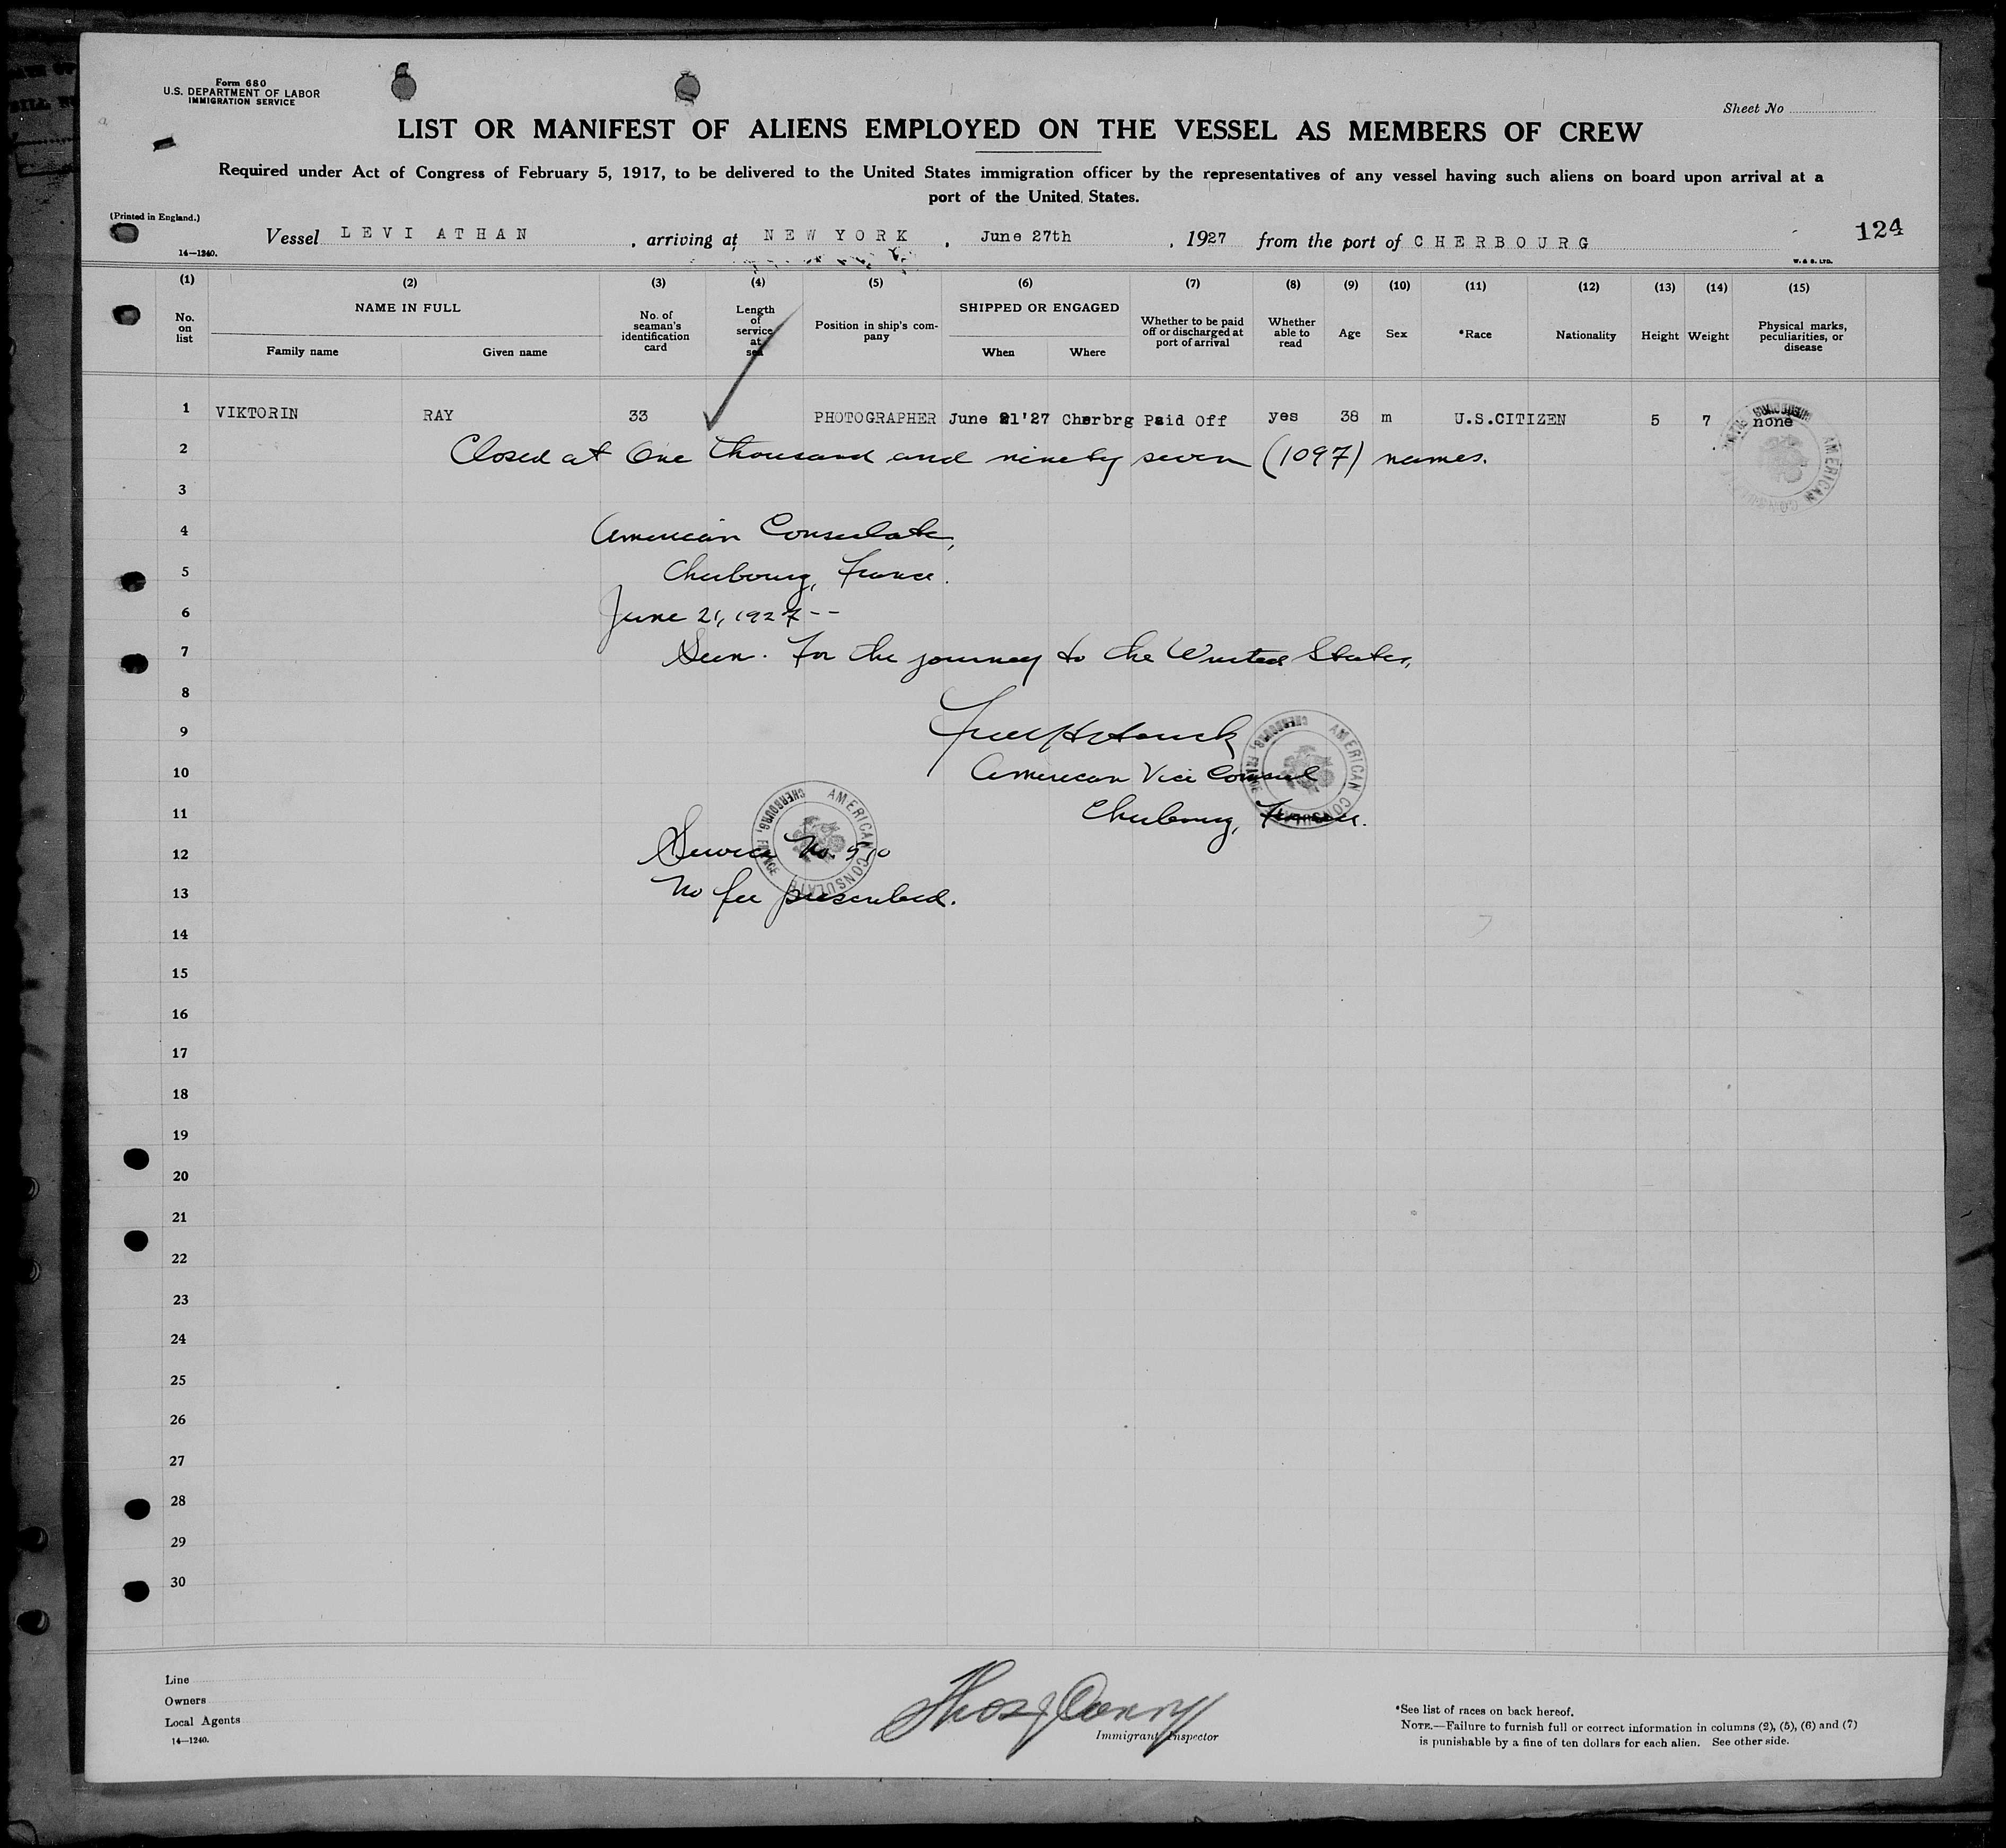 Form 680
U.S. DEPARTMENT OF LABOR
IMMIGRATION SERVICE
Sheet No
LIST OR MANIFEST OF ALIENS EMPLOYED ON THE VESSEL AS MEMBERS OF CREW
Required under Act of Congress of February 5, 1917, to be delivered to the United States immigration officer by the representatives of any vessel having such aliens on board upon arrival at a
port of the United States.
(Printed in England.)
14—1240.
Vessel LEVI ATHAN , arriving at NEW YORK , June 27th , 1927 from the port of CHERBOURG
124
W. & S. LTD.
(1) (2) (3) (4) (5) (6) (7) (8) (9) (10) (11) (12) (13) (14) (15)
No. on list
NAME IN FULL
Family name Given name
No. of seaman's identification card
Length of service at sea
Position in ship's company
SHIPPED OR ENGAGED
When Where
Whether to be paid off or discharged at port of arrival
Whether able to read
Age
Sex
*Race
Nationality
Height
Weight
Physical marks, peculiarities, or disease
1 VIKTORIN RAY 33 PHOTOGRAPHER June 21'27 Cherbrg Paid Off yes 38 m U.S.CITIZEN 5 7 none
2 Closed at One thousand and ninety seven (1097) names.
3
4 American Consulate,
5 Cherbourg, France.
6 June 21, 1927--
7 Seen. For the journey to the United States,
8
9
10 American Vice Consul
11 Cherbourg, France.
12 Service No. 510
13 No fee prescribed.
14
15
16
17
18
19
20
21
22
23
24
25
26
27
28
29
30
AMERICAN CONSULATE
CHERBOURG, FRANCE
AMERICAN CONSULATE
CHERBOURG, FRANCE
AMERICAN CONSULATE
Line
Owners
Local Agents
14—1240.
Immigrant Inspector
*See list of races on back hereof.
NOTE.—Failure to furnish full or correct information in columns (2), (5), (6) and (7)
is punishable by a fine of ten dollars for each alien. See other side.